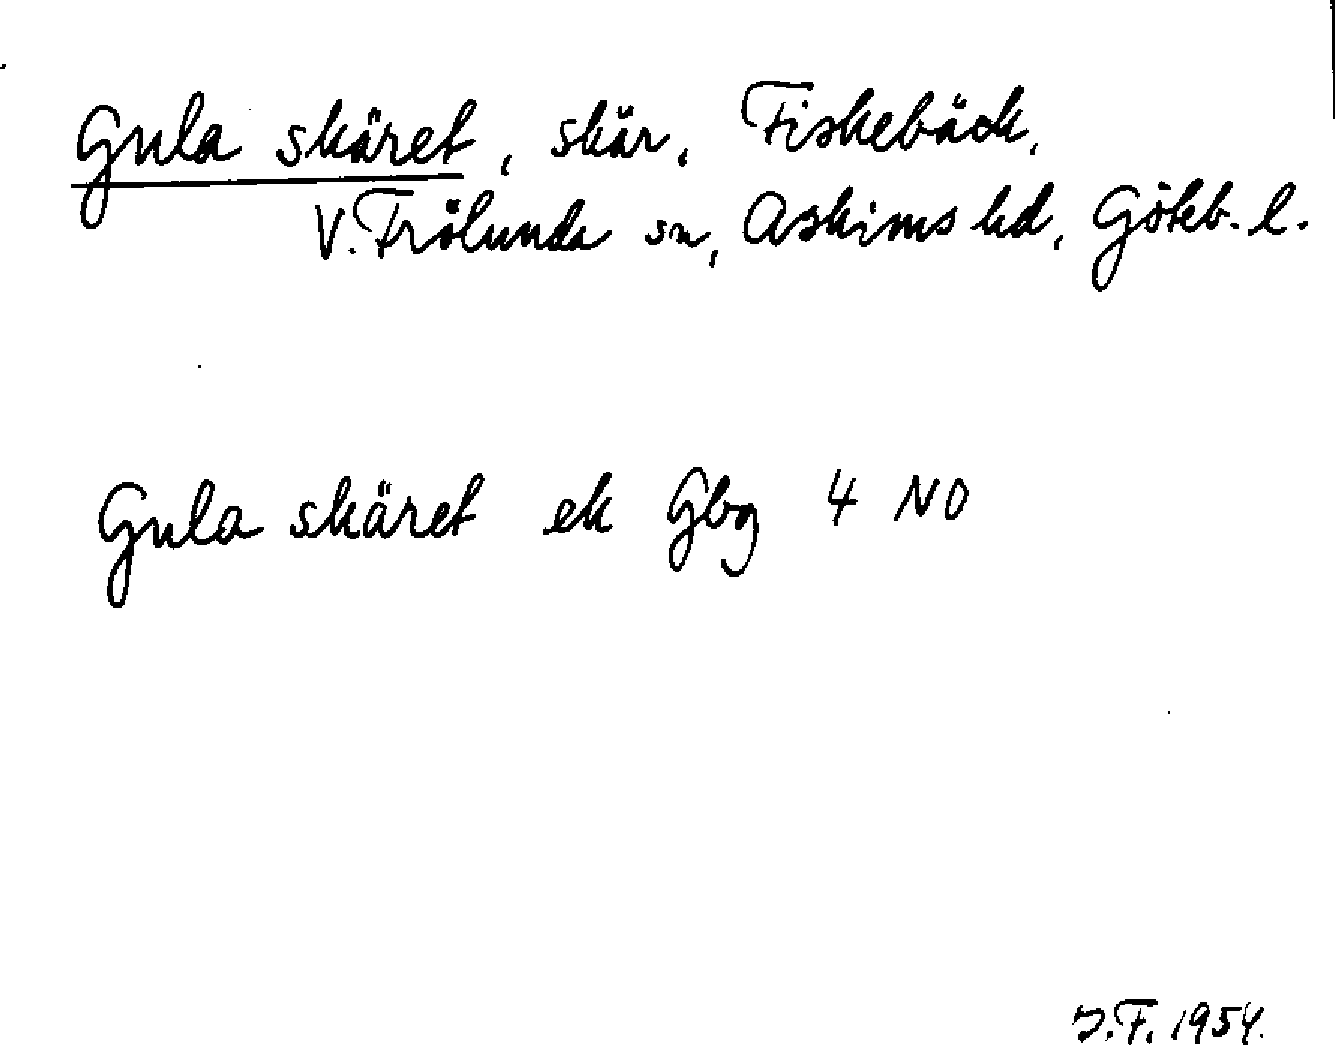 Gula skäret, skär, Fiskebäck,
V. Frölunda sn, Askims hd, Göteb. l.
Gula skäret ek Gbg 4 NO
J.F. 1954.